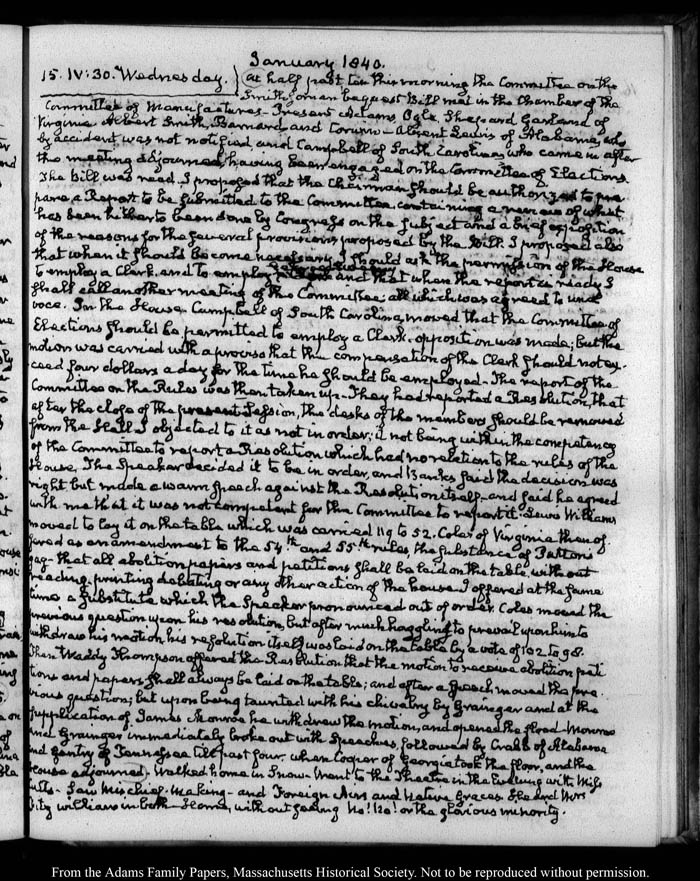 January 1840.
15. IV:30. Wednesday.
At half past ten this morning the Committee on the
Smithsonian bequest Bill met in the Chamber of the
Committee of Manufactures. Present Adams, Ogle, Shepard Garland of
Virginia Albert Smith, Barnard, and Corwin — Absent Lewis of Alabama, who
by accident was not notified, and Campbell of South Carolina, who came in after
the meeting adjourned, having been engaged on the Committee of Elections.
The bill was read. I proposed that the Chairman should be authorized to pre-
pare a Report to be submitted to the Committee, containing a review of what
has been hitherto been done by Congress on the subject and a brief exposition
of the reasons for the several provisions proposed by the Bill. I proposed also
that when it should become necessary I should ask the permission of the House
to employ a Clark, and to employ and that when the report is ready I
shall call another meeting of the Committee: all which was agreed to una
voce. In the House Campbell of South Carolina, moved that the Committee of
Elections should be permitted to employ a Clark. opposition was made; but the
motion was carried with a proviso that the compensation of the Clerk should not ex-
ceed four dollars a day for the time he should be employed — The report of the
Committee on the Rules was then taken up — They had reported a Resolution, that
after the close of the present Session, the desks of the members should be removed
from the Hall. I objected to it as not in order; it not being within the competency
of the Committee to report a Resolution which had no relation to the rules of the
House. The Speaker decided it to be in order, and Banks said the decision was
right but made a warm speech against the Resolution itself — and said he agreed
with me that it was not competent for the Committee to report it. Lewis Williams
moved to lay it on the table which was carried 119 to 52. Coles of Virginia then of-
fered as an amendment to the 54th and 55th rules, the substance of Patton's
gag — that all abolition papers and petitions shall be laid on the table, without
reading, printing debating or any other action of the house. I offered at the same
time a Substitute which the Speaker pronounced out of order. Coles moved the
previous question upon his resolution, but after much haggling to prevail upon him to
withdraw his motion, his resolution itself was laid on the table by a vote of 102 to 98.
Then Waddy Thompson offered the Resolution that the motion to receive abolition peti-
tions and papers shall always be laid on the table; and after a speech moved the pre-
vious question; but upon being taunted with his chivalry by Grainger and at the
supplication of James Monroe he withdrew the motion, and opened the flood — Monroe
and Grainger immediately broke out with Speeches, followed by Crabb of Alabama
and Gentry of Tennessee till past four, when Cooper of Georgia took the floor, and the
House adjourned. Walked home in Snow. Went to the Theatre in the Evening with Miss
Cutts — Saw Mischief-Making — and Foreign Airs and Native Graces. She and Mrs
Fitzwilliam in both — Home, without seeing No! No! or the glorious minority.
From the Adams Family Papers, Massachusetts Historical Society. Not to be reproduced without permission.